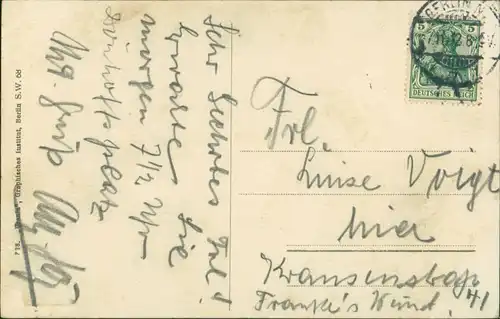 Sehr Geehrtes Frl!
Erwarte Sie
morgen 7 1/2 Uhr
Dönhoffplatz
Mit Gruß
Frl.
Luise Voigt
hier
Krausenstr
41
BERLIN
7.11.12.8
5
5
DEUTSCHES REICH
Graphisches Institut, Berlin S.W. 68